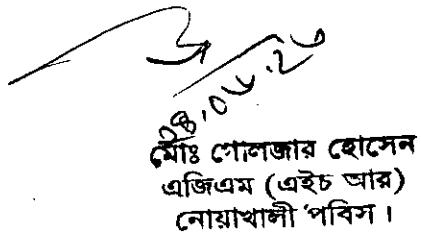 মোঃ গোলজার হোসেন
এজিএম (এইচ আর)
নোয়াখালী পবিস।